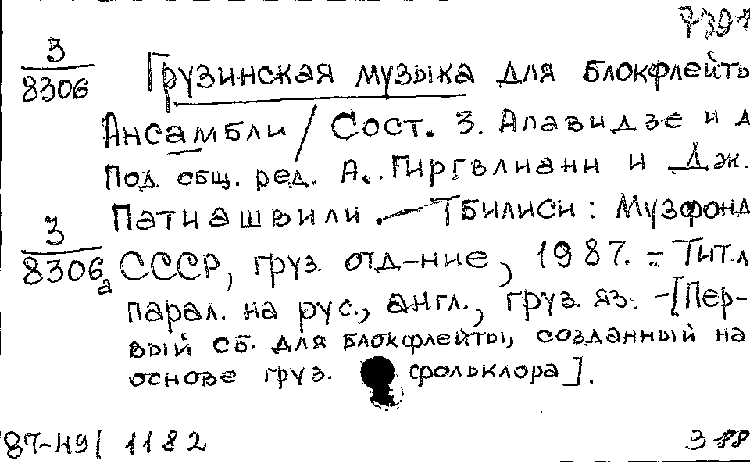 7391
3
8306
Грузинская музыка для блокфлейты
Ансамбли / Сост. З. Алавидзе и д
Под общ. ред. А. Гиргвлиани и Дж.
Патиашвили. — Тбилиси: Музфонд
3
8306а
СССР, груз. отд-ние, 1987. - Тит.л
парал. на рус., англ., груз. яз. - [Пер-
вый сб. для блокфлейты, созданный на
основе груз. фольклора].
87-49/ 1182
3 88